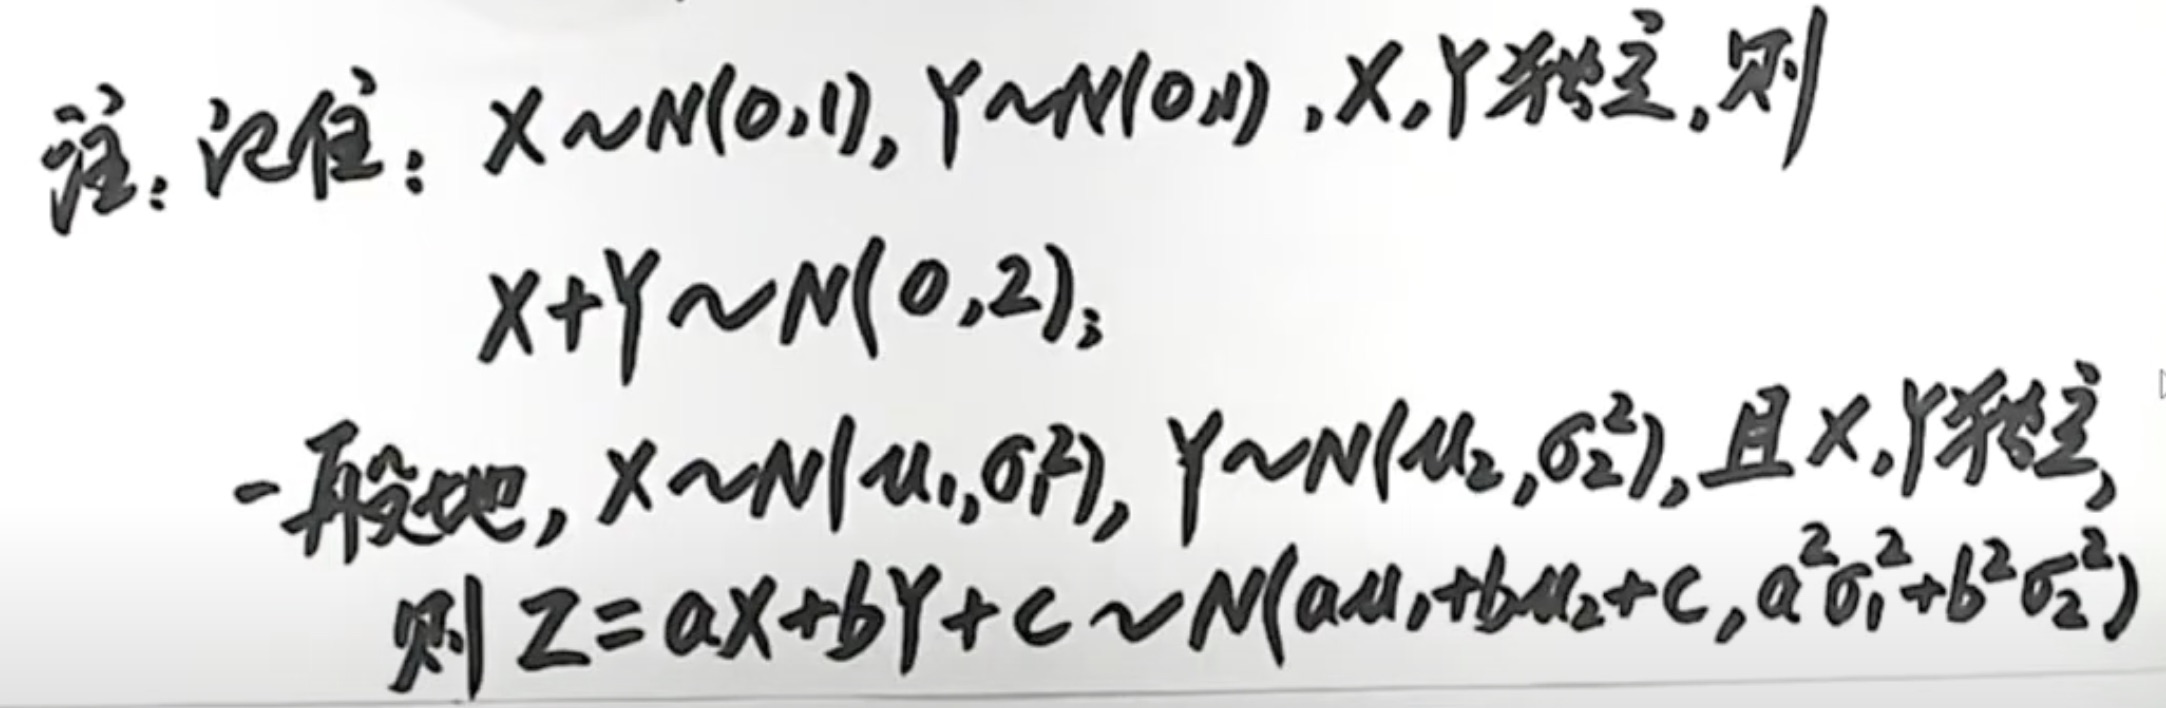 注:记住: X~N(0,1), Y~N(0,1), X,Y独立,则
X+Y~N(0,2);
一般地, X~N(μ₁,σ₁²), Y~N(μ₂,σ₂²), 且X,Y独立,
则 Z=aX+bY+c~N(aμ₁+bμ₂+c, a²σ₁²+b²σ₂²)